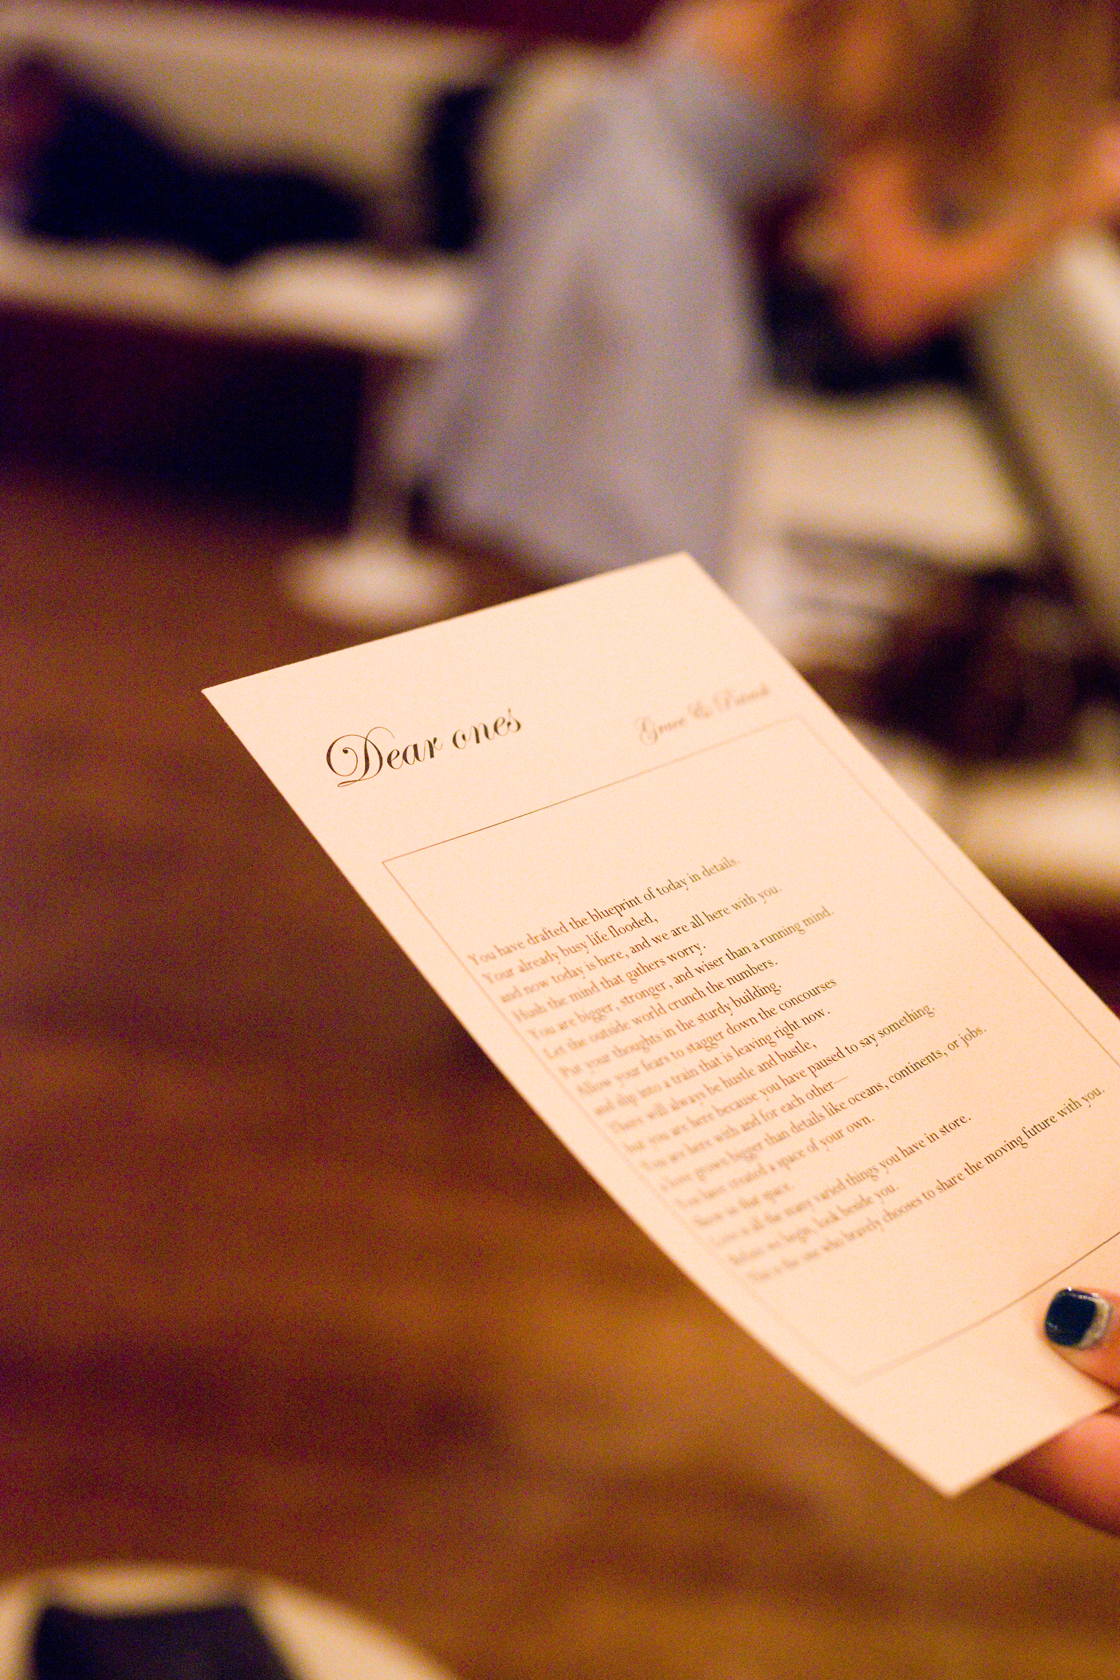 Dear ones
Grace & Patrick
You have drafted the blueprint of today in details.
Your already busy life flooded,
and now today is here, and we are all here with you.
Hush the mind that gathers worry.
You are bigger, stronger, and wiser than a running mind.
Let the outside world crunch the numbers.
Put your thoughts in the sturdy building.
Allow your fears to stagger down the concourses
and slip into a train that is leaving right now.
There will always be hustle and bustle,
but you are here because you have paused to say something.
You are here with and for each other—
a love grows bigger than details like oceans, continents, or jobs.
You have created a space of your own.
in that space.
Love is all the many varied things you have in store.
Before we begin, look beside you.
This is the one who bravely chooses to share the moving future with you.